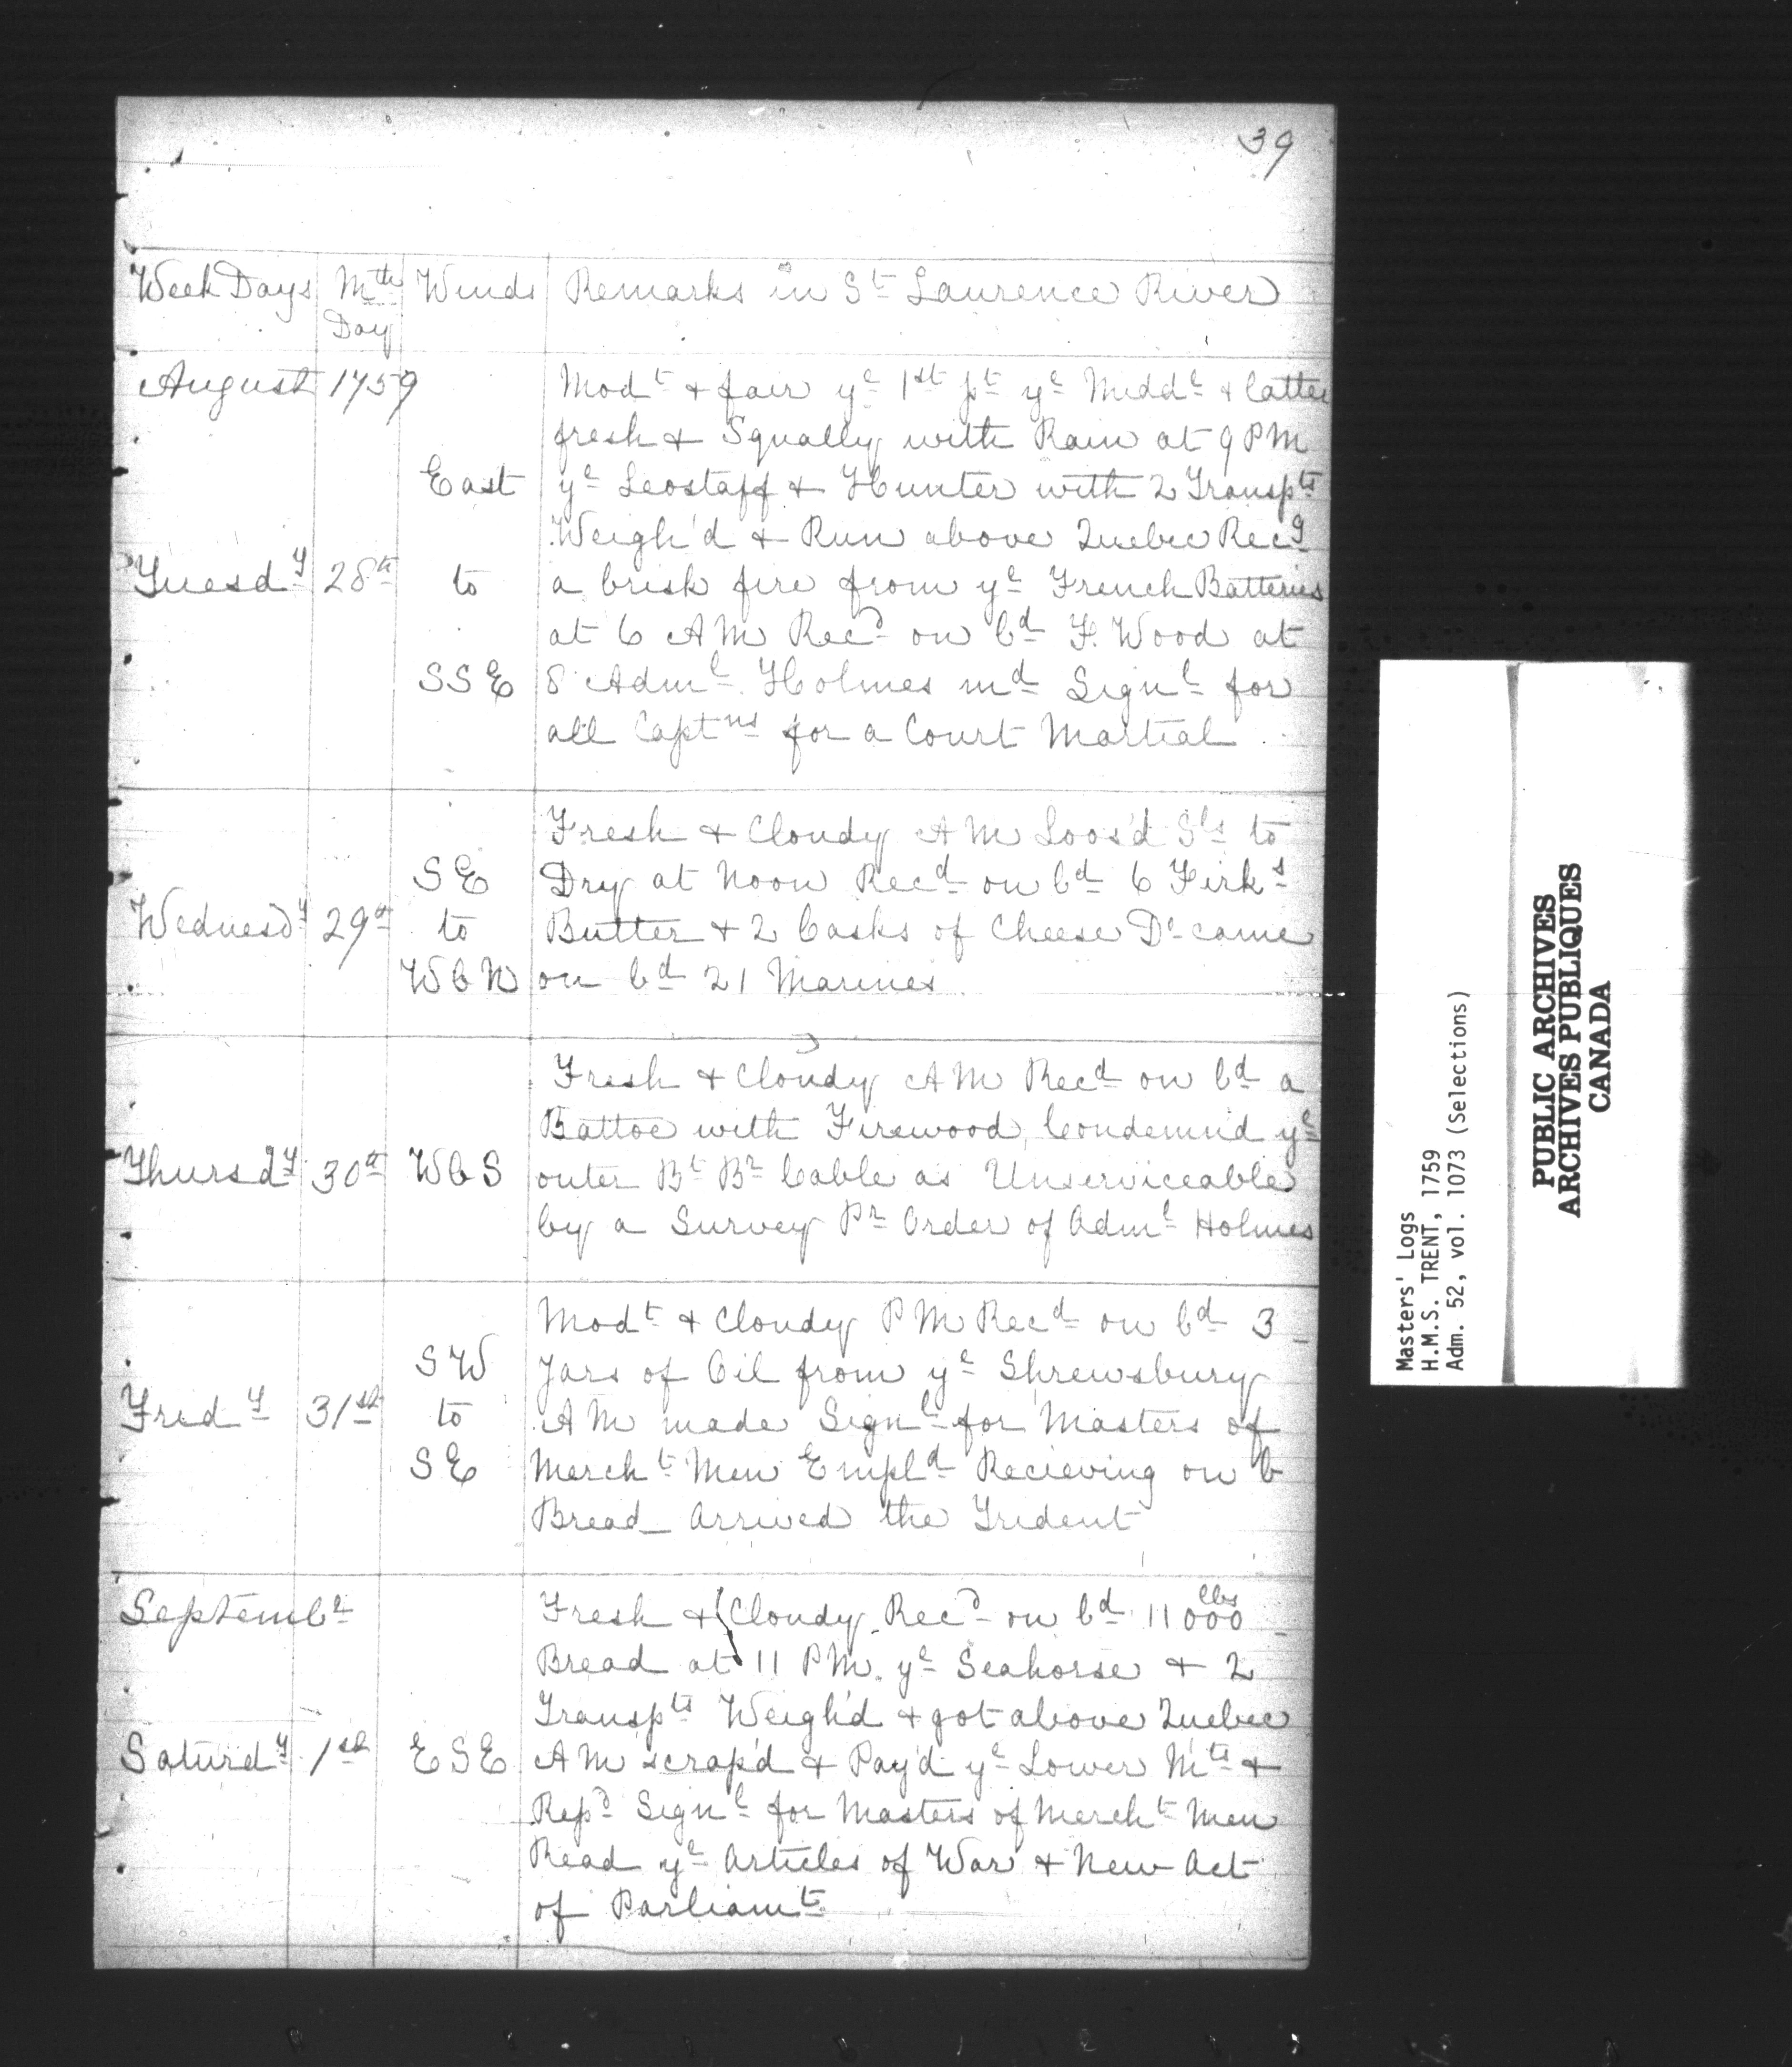 39
Week Days Mth Day Winds Remarks in St Laurence River
August 1759
Modt & fair ye 1st pt ye Middl & latter
fresh & Squally with Rain at 9 PM
East ye Leostaff & Hunter with 2 Transpts
Weigh'd & Run above Quebec Recg
Tuesdy 28th to a brisk fire from ye French Batteries
at 6 AM Recd on bd F. Wood at
SSE 8 Adml Holmes md Signl for
all Captns for a Court Martial
Fresh & Cloudy AM Loos'd Sls to
SE Dry at Noon Recd on bd 6 Firks
Wednesdy 29th to Butter & 2 Casks of Cheese Do came
WbN on bd 21 Marines
Fresh & Cloudy AM Recd on bd a
Battoe with Firewood, Condemnd ye
Thursdy 30th WbS outer Bt Br Cable as Unserviceable
by a Survey Pr Order of Adml Holmes
Modt & Cloudy PM Recd on bd 3
SW Jars of Oil from ye Shrewsbury
Fridy 31st to AM made Signl for Masters of
SE Mercht Men Empld Recieving on b
Bread Arrived the Trident
Septembr Fresh & Cloudy Recd on bd 11000 lbs
Bread at 11 PM. ye Seahorse & 2
Transpts Weigh'd & got above Quebec
Saturdy 1st ESE AM scrap'd & Pay'd ye Lower Mts &
Repd Signl for Masters of Mercht Men
Read ye Articles of War & New Act
of Parliamt
Masters' Logs
H.M.S. TRENT, 1759
Adm. 52, vol. 1073 (Selections)
PUBLIC ARCHIVES
ARCHIVES PUBLIQUES
CANADA